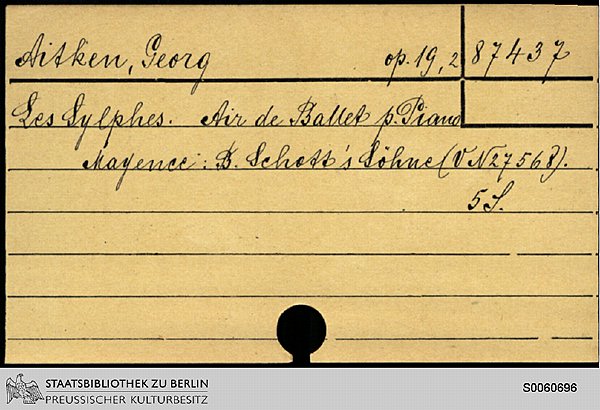 Aitken, Georg op. 19, 2 87437
Les Sylphes. Air de Ballet p. Piano
Mayence: B. Schott's Söhne (VN 27568).
5 S.
STAATSBIBLIOTHEK ZU BERLIN
PREUSSISCHER KULTURBESITZ
S0060696